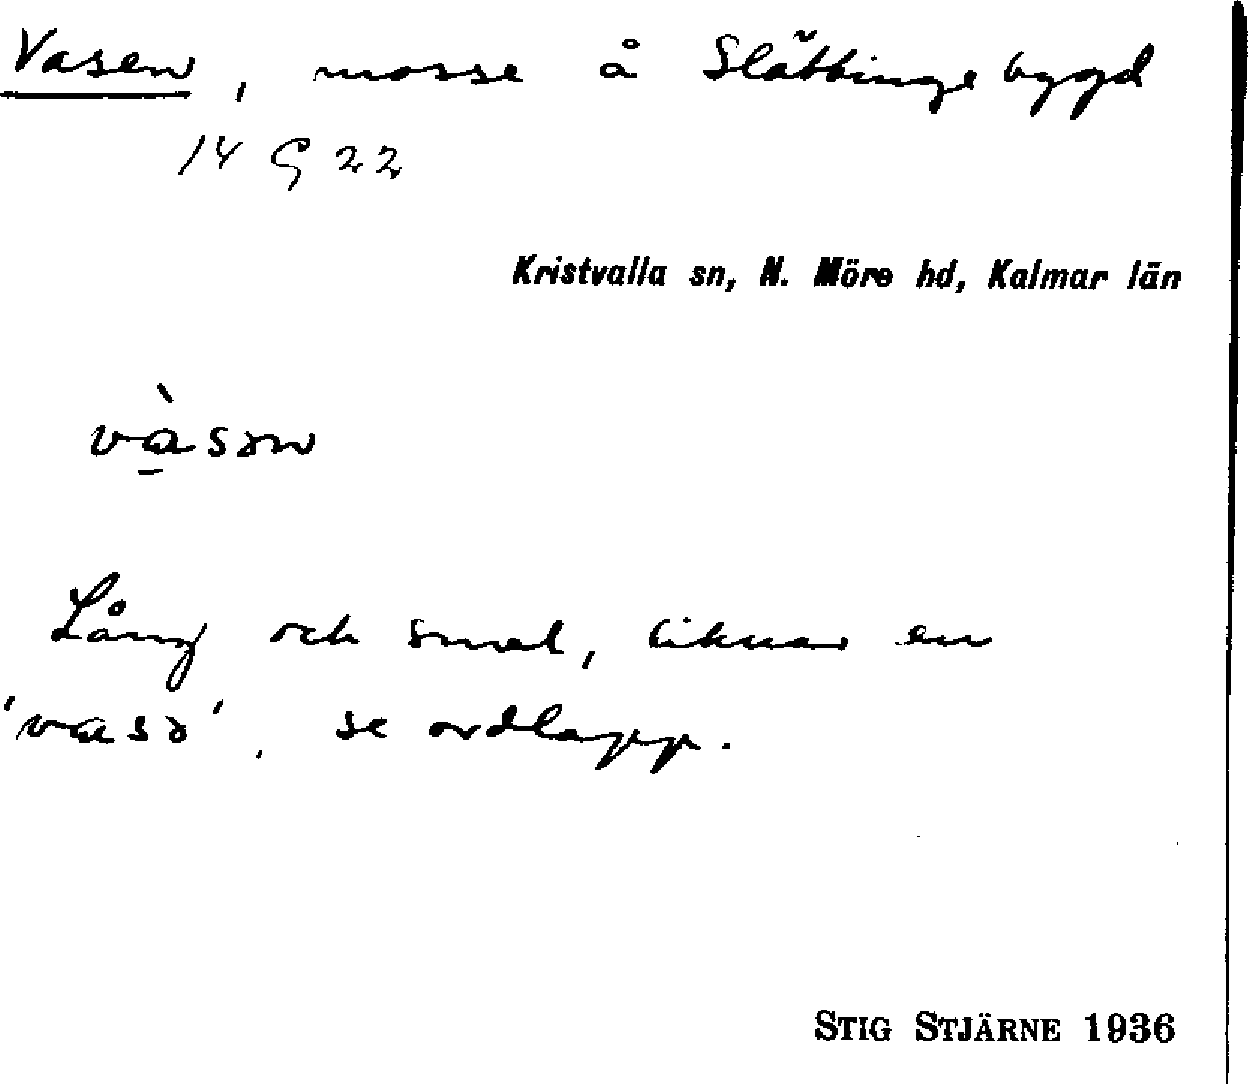 Vasen, mosse å Slättingebygd
14 G 22
Kristvalla sn, N. Möre hd, Kalmar län
vàsən
Lång och smal, liknar en
'vasə', se ordlapp.
STIG STJÄRNE 1936